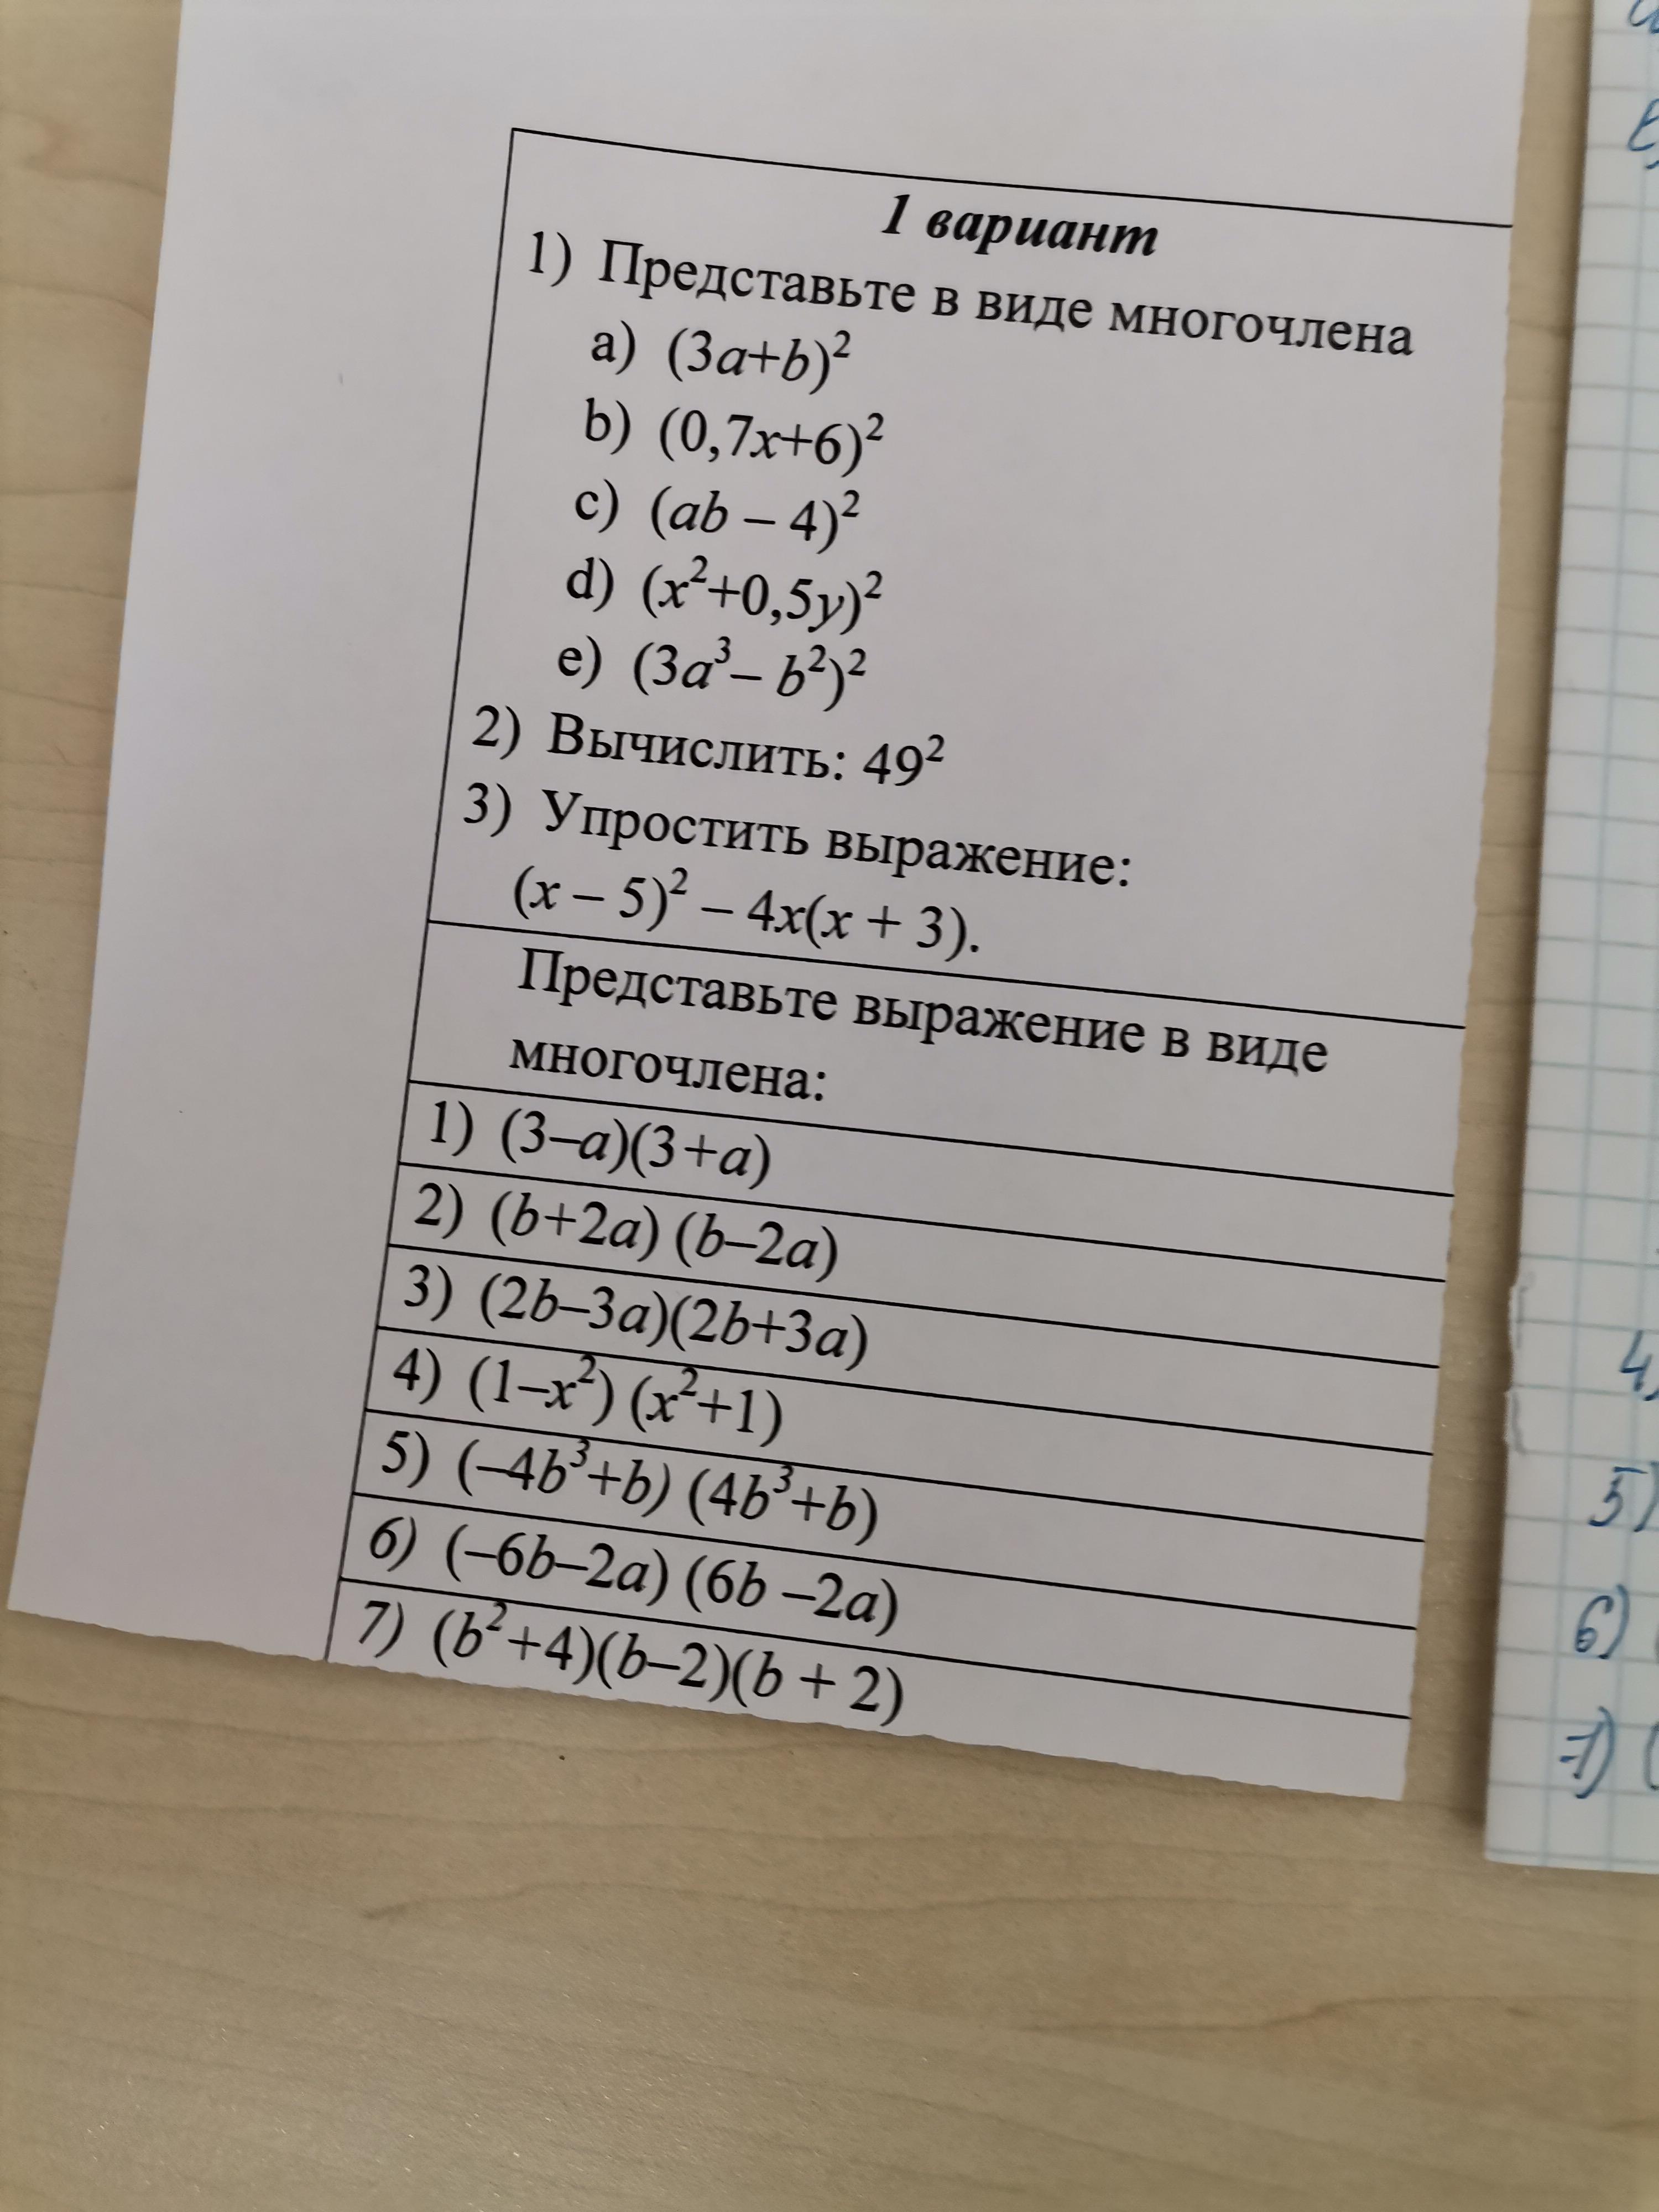 1 вариант
1) Представьте в виде многочлена
a) (3a+b)²
b) (0,7x+6)²
c) (ab – 4)²
d) (x²+0,5y)²
e) (3a³– b²)²
2) Вычислить: 49²
3) Упростить выражение:
(x – 5)² – 4x(x + 3).
Представьте выражение в виде
многочлена:
1) (3–a)(3+a)
2) (b+2a) (b–2a)
3) (2b–3a)(2b+3a)
4) (1–x²) (x²+1)
5) (–4b³+b) (4b³+b)
6) (–6b–2a) (6b –2a)
7) (b²+4)(b–2)(b + 2)
4)
5)
6)
7) (